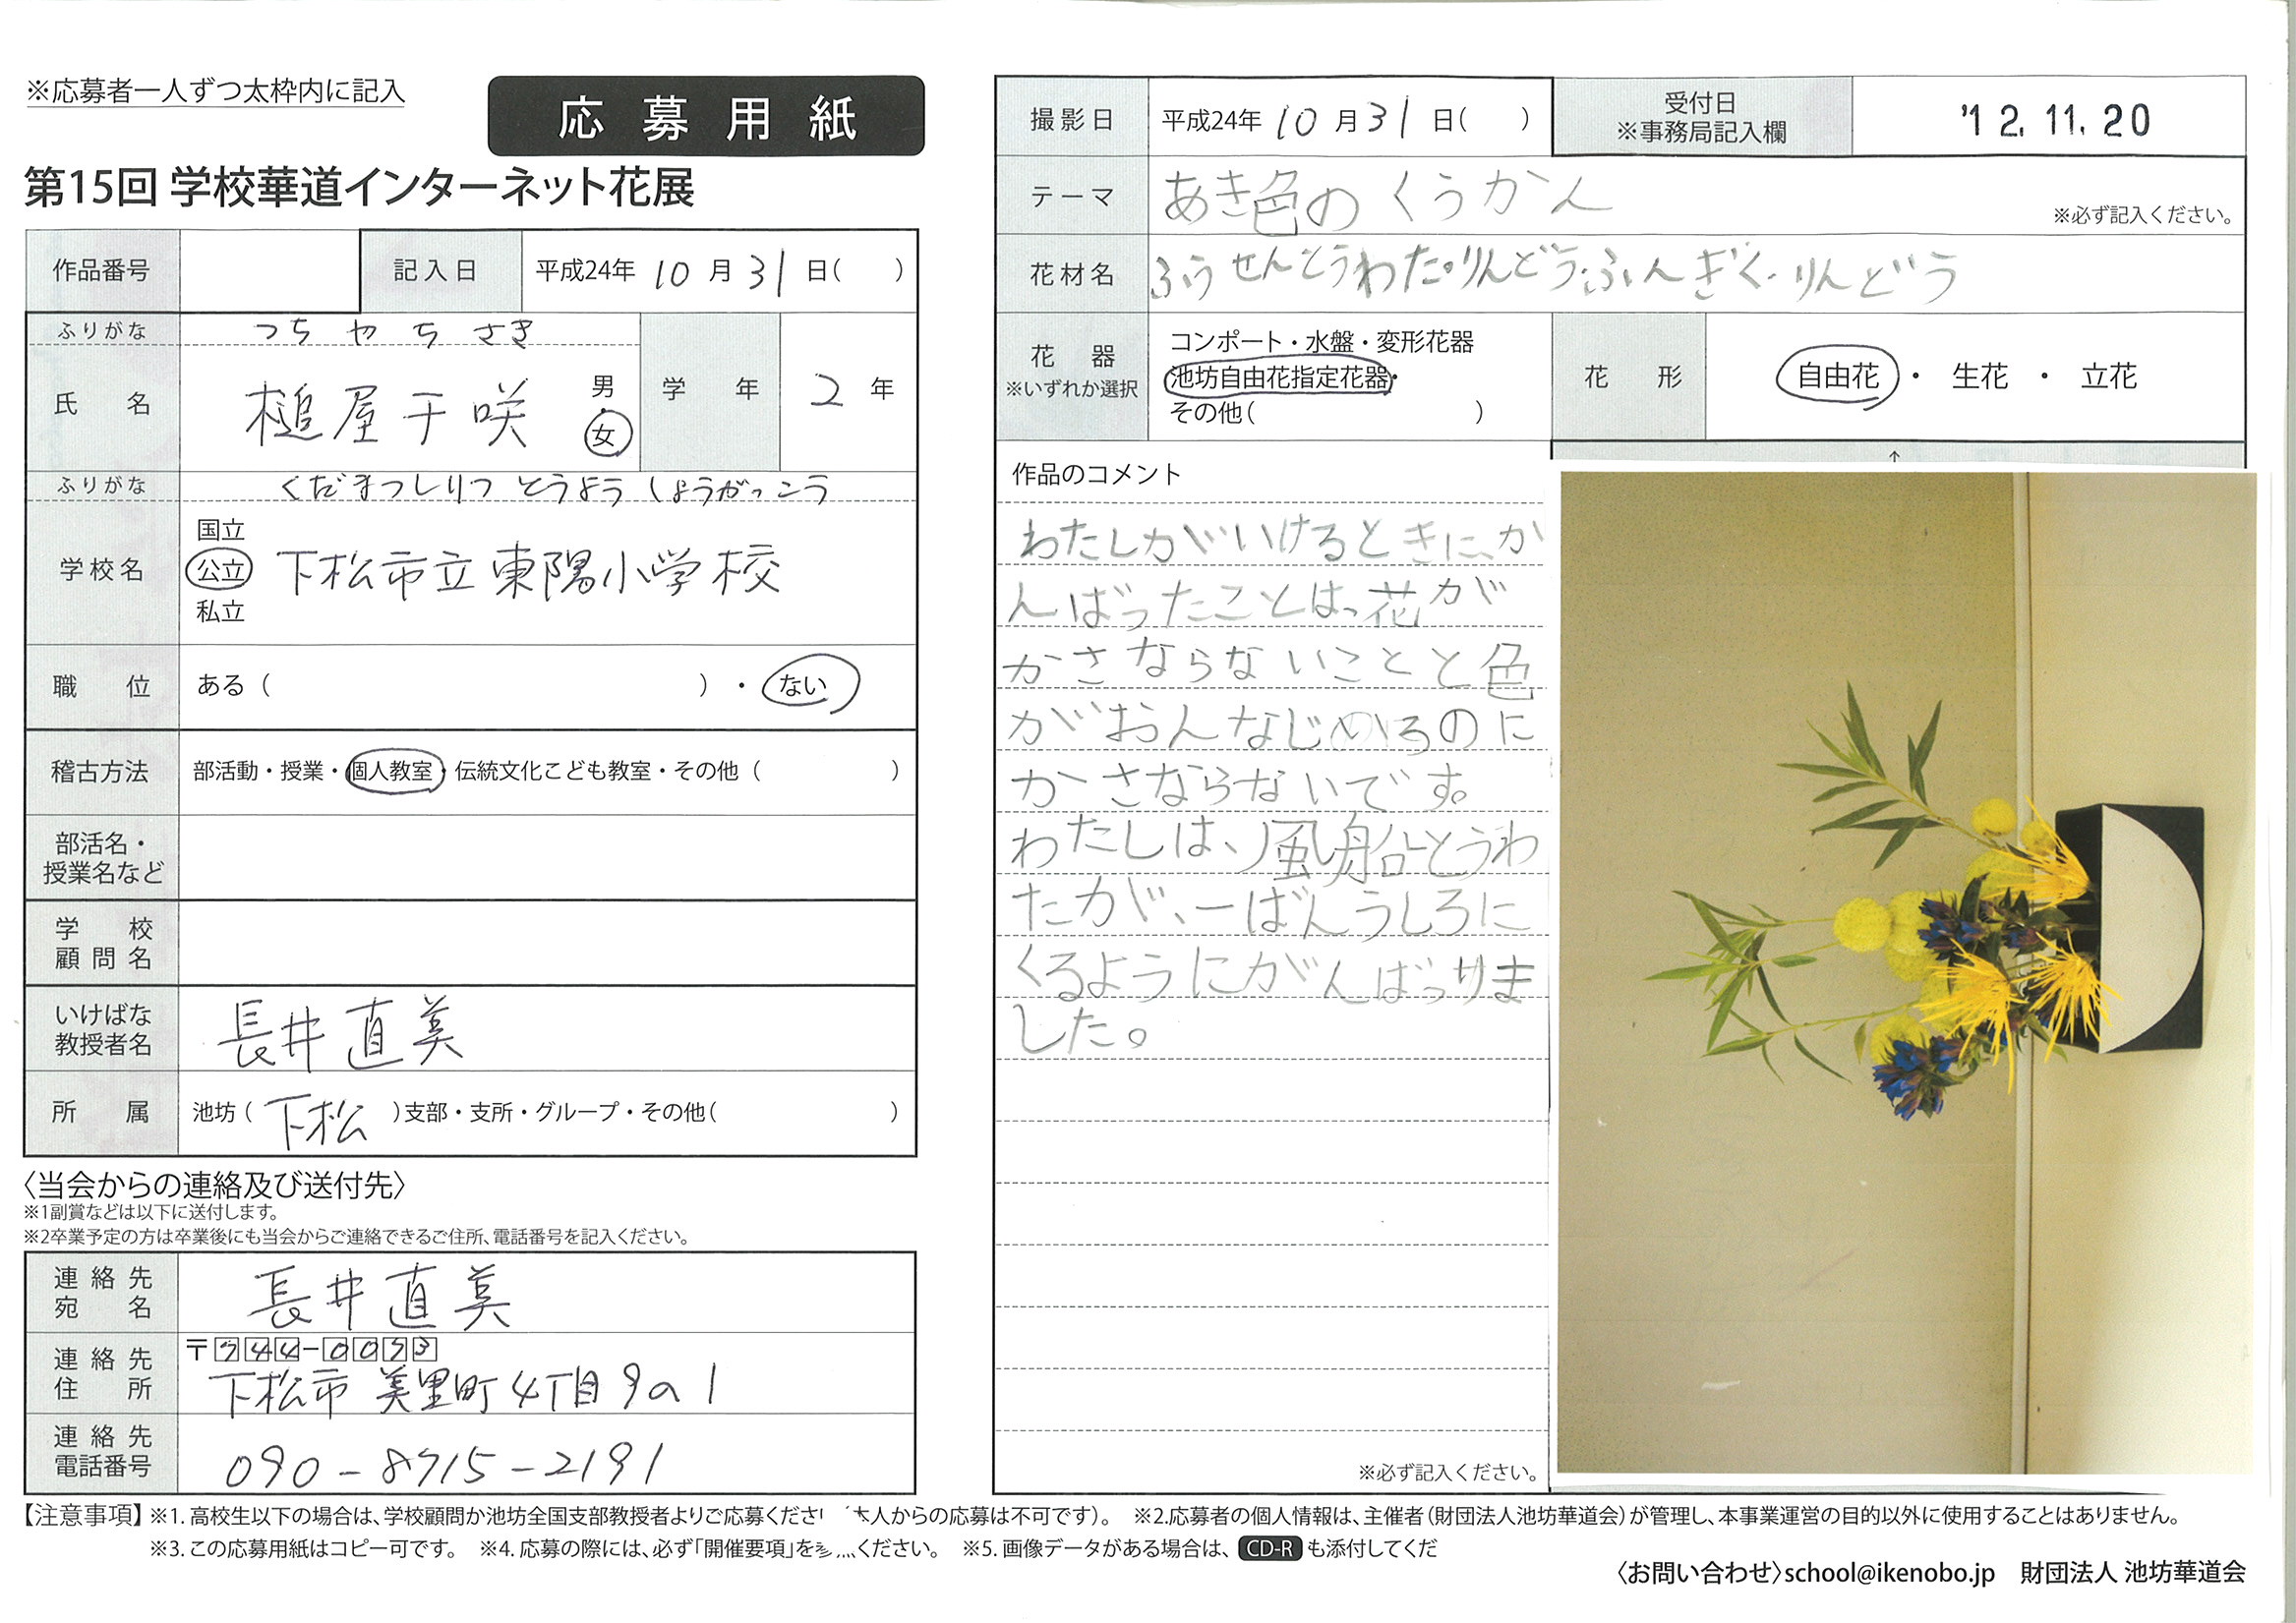 ※応募者一人ずつ太枠内に記入
応募用紙
第15回 学校華道インターネット花展
作品番号
記入日 平成24年 10月 31日( )
ふりがな つち や ち さき
氏名 槌屋千咲 男・女
学年 2年
ふりがな くだまつしりつ とうよう しょうがっこう
学校名 国立 公立 私立 下松市立東陽小学校
職位 ある( )・ない
稽古方法 部活動・授業・個人教室・伝統文化こども教室・その他( )
部活名・
授業名など
学校
顧問名
いけばな
教授者名 長井直美
所属 池坊(下松)支部・支所・グループ・その他( )
〈当会からの連絡及び送付先〉
※1副賞などは以下に送付します。
※2卒業予定の方は卒業後にも当会からご連絡できるご住所、電話番号を記入ください。
連絡先
宛名 長井直美
連絡先
住所 〒744-0073
下松市 美里町4丁目9の1
連絡先
電話番号 090-8715-2191
撮影日 平成24年 10月 31日( )
受付日
※事務局記入欄 '12.11.20
テーマ あき色のくうかん
※必ず記入ください。
花材名 ふうせんとうわた・りんどう・ふんぎく・りんどう
花器
※いずれか選択
コンポート・水盤・変形花器
池坊自由花指定花器・
その他( )
花形 自由花・生花・立花
↑
作品のコメント
わたしがいけるときに、が
んばったことは、花が
かさならないことと色
がおんなじいろのに
かさならないです。
わたしは、風船とうわ
たが、一ばんうしろに
くるようにがんばっりま
した。
※必ず記入ください。
【注意事項】※1. 高校生以下の場合は、学校顧問か池坊全国支部教授者よりご応募くださ 人からの応募は不可です)。 ※2.応募者の個人情報は、主催者(財団法人池坊華道会)が管理し、本事業運営の目的以外に使用することはありません。
※3. この応募用紙はコピー可です。 ※4. 応募の際には、必ず「開催要項」を ください。 ※5. 画像データがある場合は、CD-Rも添付してくだ
〈お問い合わせ〉school@ikenobo.jp 財団法人 池坊華道会